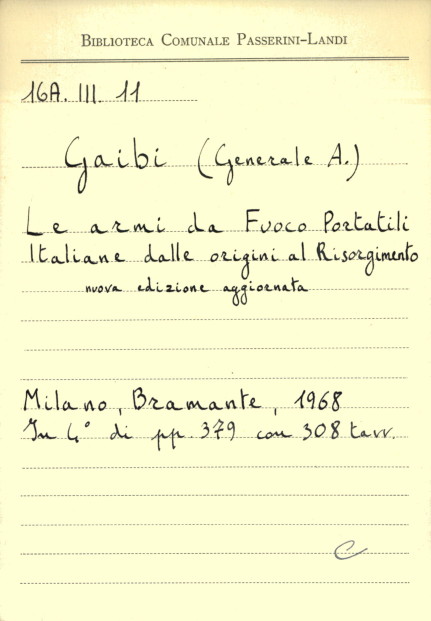 Biblioteca Comunale Passerini-Landi
16A. III. 11
Gaibi (Generale A.)
Le armi da Fuoco Portatili
Italiane dalle origini al Risorgimento
nuova edizione aggiornata
Milano, Bramante, 1968
In 4° di pp. 379 con 308 tavv.
C